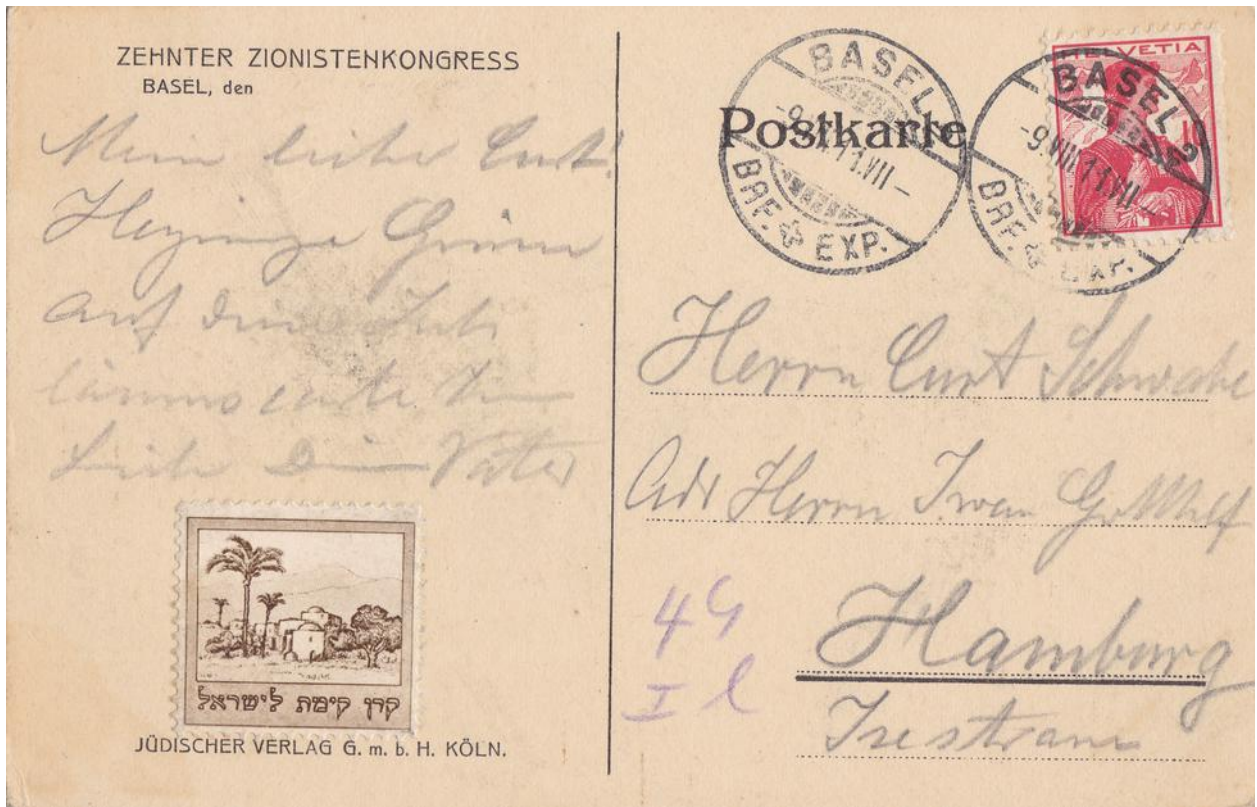 ZEHNTER ZIONISTENKONGRESS
BASEL, den
Mein lieber Curt!
Herzinnige Grüsse
auf
Dein Vater
קרן קימת לישראל
JÜDISCHER VERLAG G. m. b. H. KÖLN.
Postkarte
BASEL
-9.VIII.11.VII-
BRF. EXP.
HELVETIA
10
BASEL
-9.VIII.11.VII-
BRF. EXP.
Herrn Curt Schwabe
Adr Herrn Iwan Gotthelf
49
I l
Hamburg